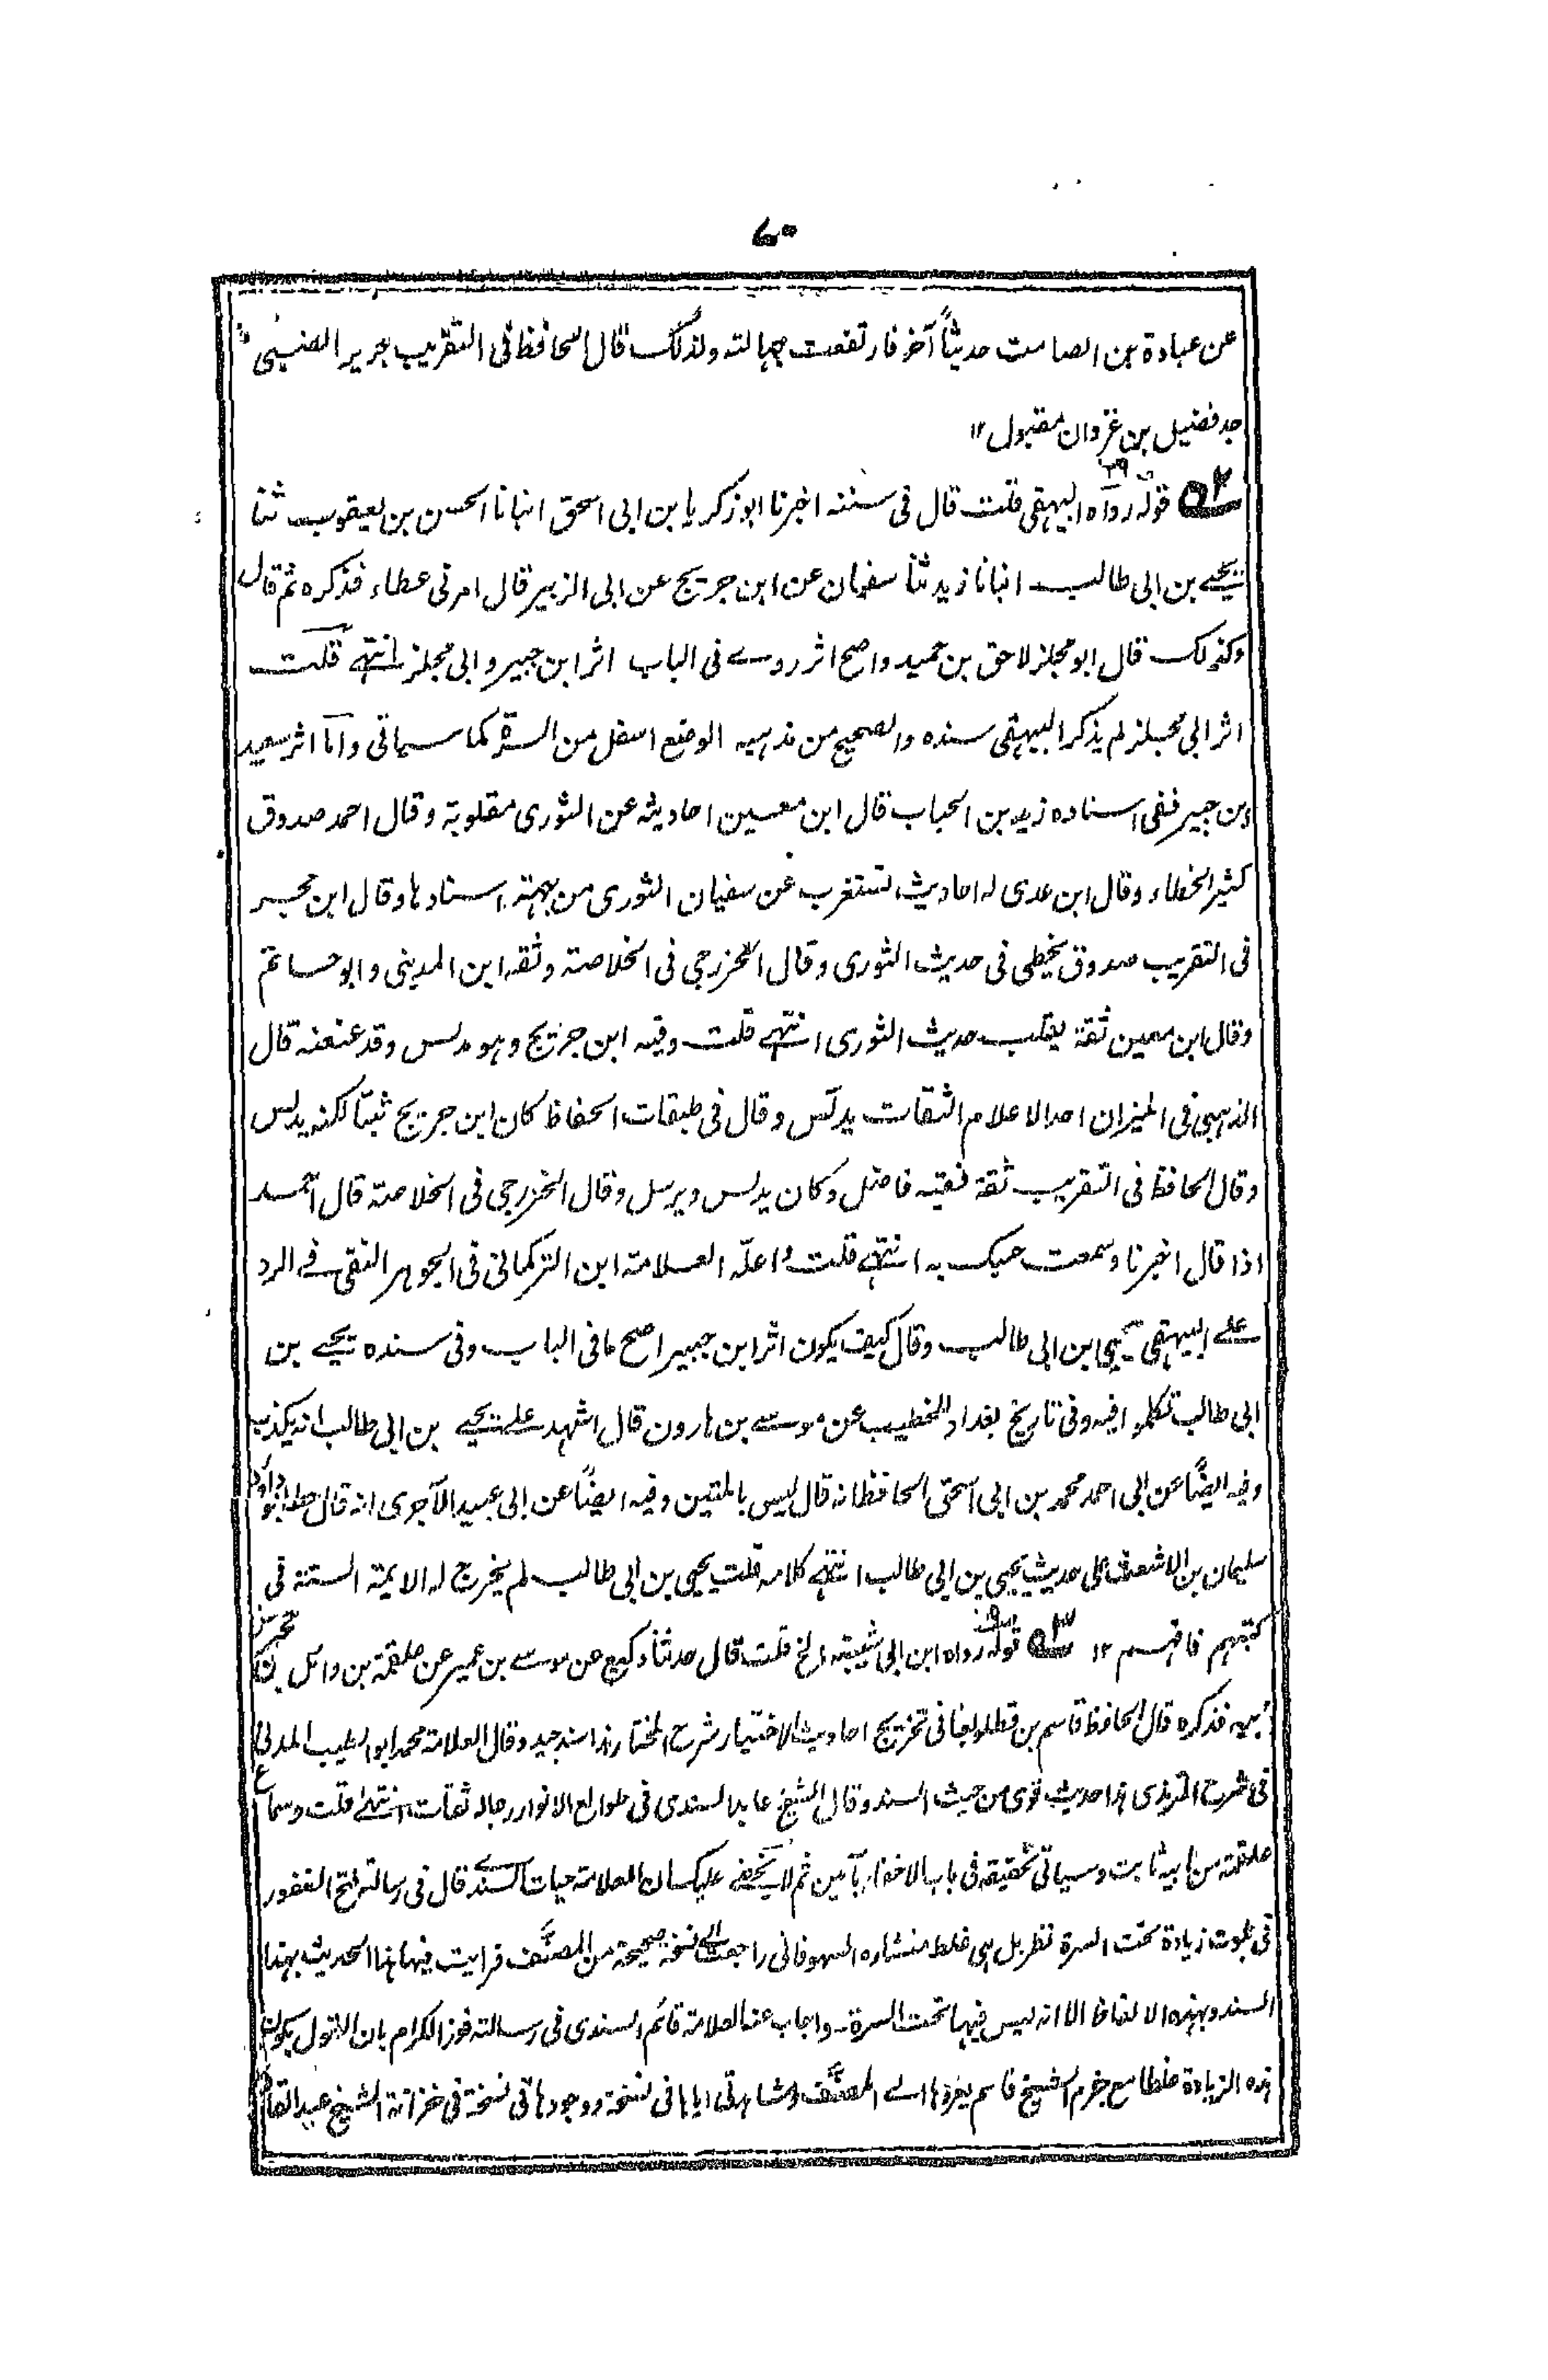 ٧٠
عن عبادة بن الصامت حديثاً آخر فارتفعت جهالته ولذلك قال الحافظ فى التقريب جرير الضبّى
جد فضيل بن غزوان مقبول ١٢
٥٢ قوله رواه البيهقى قلت قال فى سننه اخبرنا ابو زكريا بن ابى اسحق انبانا الحسن بن يعقوب ثنا
يحيے بن ابى طالب انبانا زيد ثنا سفيان عن ابن جريج عن ابى الزبير قال امرنى عطاء فذكره ثم قال
وكذلك قال ابو مجلز لاحق بن حميد واصح اثر روے فى الباب اثر ابن جبير وابى مجلز انتهے قلت
اثر ابى مجلز لم يذكر البيهقى سنده والصحيح من مذهبه الوضع اسفل من السرة كما سياتى واما اثر سعيد
بن جبير ففى اسناده زيد بن الحباب قال ابن معين احاديثه عن الثورى مقلوبة وقال احمد صدوق
كثير الخطاء وقال ابن عدى له احاديث تستغرب عن سفيان الثورى من جهة اسنادها وقال ابن حجر
فى التقريب صدوق يخطى فى حديث الثورى وقال الخزرجى فى الخلاصة وثقه ابن المدينى وابو حاتم
وقال ابن معين ثقة يقلب حديث الثورى انتهے قلت وفيه ابن جريج وهو مدلس وقد عنعنه قال
الذهبى فى الميزان احد الاعلام الثقات يدلّس وقال فى طبقات الحفاظ كان ابن جريج ثبتاً لكنه يدلس
وقال الحافظ فى التقريب ثقة فقيه فاضل وكان يدلس ويرسل وقال الخزرجى فى الخلاصة قال احمد
اذا قال اخبرنا وسمعت حسبك به انتهے قلت واعلّه العلامة ابن التركمانى فى الجوهر النقى فے الرد
علے البيهقى بيحيى ابن ابى طالب وقال كيف يكون اثر ابن جبير اصح ما فى الباب وفى سنده يحيے بن
ابى طالب تكلموا فيه وفى تاريخ بغداد للخطيب عن موسے بن هارون قال اشهد علے يحيے بن ابى طالب انه يكذب
وفيه ايضاً عن ابى احمد محمد بن ابى اسحق الحافظ انه قال ليس بالمتين وفيه ايضاً عن ابى عبيد الآجرى انه قال خط ابو داؤد
سليمان بن الاشعث على حديث يحيى بن ابى طالب انتهے كلامه قلت يحيى بن ابى طالب لم يخرج له الايمة الستة فى
كتبهم فافهم ١٢ ٥٣ قوله رواه ابن ابى شيبة الخ قلت قال حدثنا وكيع عن موسے بن عمير عن علقمة بن وائل بن حجر عن
ابيه فذكره قال الحافظ قاسم بن قطلوبغا فى تخريج احاديث الاختيار شرح المختار هذا سند جيد وقال العلامة محمد ابو الطيب المدنى
فى شرح الترمذى هذا حديث قوى من حيث السند وقال الشيخ عابد السندى فى طوالع الانوار رجاله ثقات انتهے قلت وسماع
علقمة من ابيه ثابت وسياتى تحقيقه فى باب الاخفاء بآمين ثم لا يخفے عليك ان العلامة حيات السندے قال فى رسالته فتح الغفور
فى ثبوت زيادة تحت السرة نظر بل هى غلط منشاءه السهو فانى راجعت الے نسخة صحيحة من المصنّف فرايت فيها هذا الحديث بهذا
السند وبهذه الالفاظ الا انه ليس فيها تحت السرة۔ واجاب عنه العلامة قائم السندى فى رسالته فوز الكرام بان القول بكون
هذه الزيادة غلطا مع جزم الشيخ قاسم بعزوها الے المصنّف ومشاهدتى اياها فى نسخة ووجودها فى نسخة فى خزانة الشيخ عبد القادر